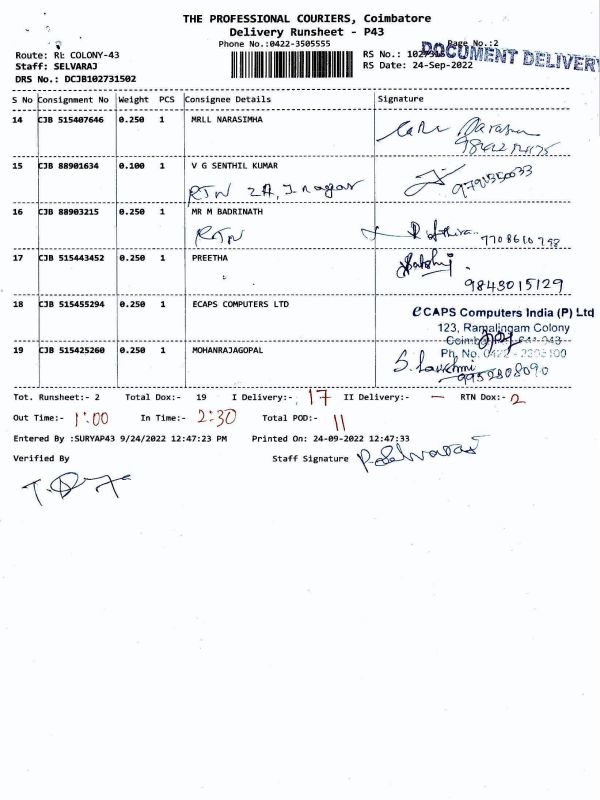 THE PROFESSIONAL COURIERS, Coimbatore
Delivery Runsheet - P43
Phone No.:0422-3505555
Page No.:2
DOCUMENT DELIVERY
Route: RL COLONY-43
RS No.:
Staff: SELVARAJ
RS Date: 24-Sep-2022
DRS No.: DCJB102731502
S No Consignment No Weight PCS Consignee Details Signature
14 CJB 515407646 0.250 1 MRLL NARASIMHA
15 CJB 88901634 0.100 1 V G SENTHIL KUMAR
RTN
16 CJB 88903215 0.250 1 MR M BADRINATH
RTN
7708610798
17 CJB 515443452 0.250 1 PREETHA
9843015129
18 CJB 515455294 0.250 1 ECAPS COMPUTERS LTD
eCAPS Computers India (P) Ltd
123, Ramalingam Colony
Ph. No.
19 CJB 515425260 0.250 1 MOHANRAJAGOPAL
S. Lakshmi
9952808090
Tot. Runsheet:- 2 Total Dox:- 19 I Delivery:- 17 II Delivery:- — RTN Dox:- 2
Out Time:- 1:00 In Time:- 2:30 Total POD:- 11
Entered By :SURYAP43 9/24/2022 12:47:23 PM Printed On: 24-09-2022 12:47:33
Verified By Staff Signature P. Selvaraj